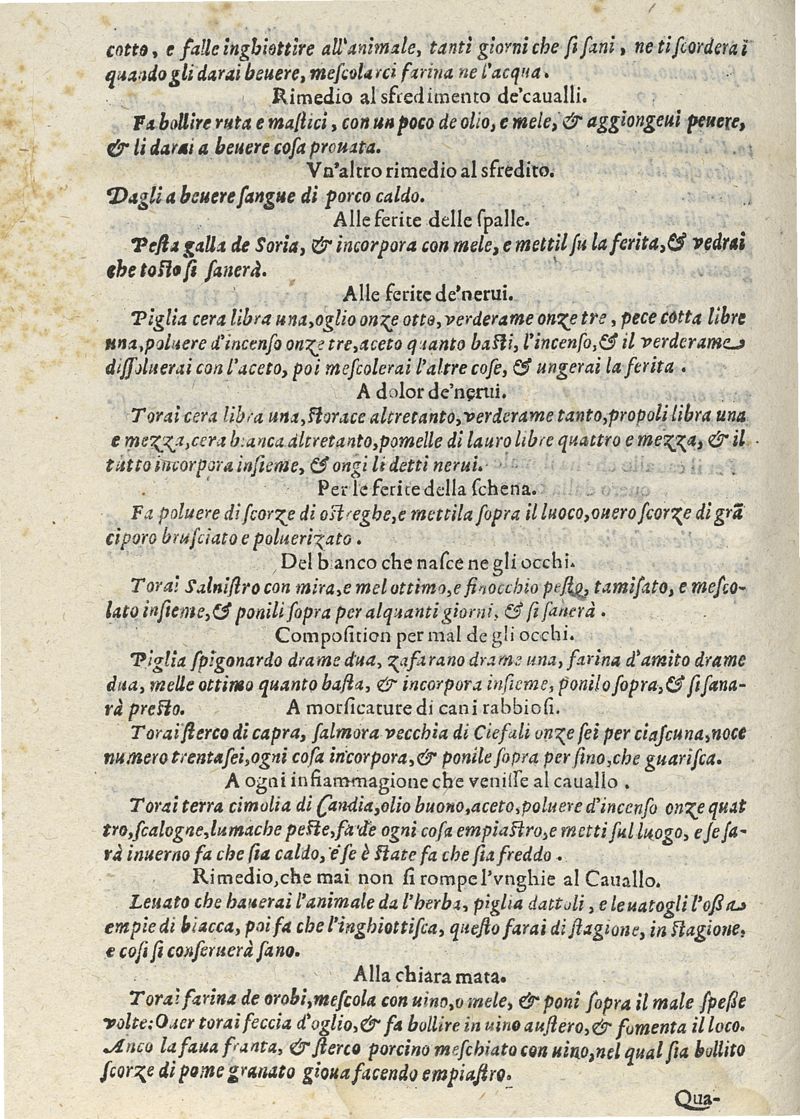 cotto, e falle inghiottire all'animale, tanti giorni che ſi ſani, ne ti ſcorderai
quando gli darai beuere, meſcolarci farina ne l'acqua.
Rimedio al sfredimento de'caualli.
Fa bollire ruta e maſtici, con un poco de olio, e mele, & aggiongeui peuere,
& li darai a beuere coſa prouata.
Vn'altro rimedio al sfredito.
Dagli a beuere ſangue di porco caldo.
Alle ferite delle ſpalle.
Peſta galla de Soria, & incorpora con mele, e mettil ſu la ferita, & vedrai
che toſto ſi ſanerà.
Alle ferite de'nerui.
Piglia cera libra una, oglio onze otto, verderame onze tre, pece cotta libre
una, poluere d'incenſo onze tre, aceto quanto baſti, l'incenſo, & il verderame
diſſoluerai con l'aceto, poi meſcolerai l'altre coſe, & ungerai la ferita.
A dolor de'nerui.
Torai cera libra una, ſtorace altretanto, verderame tanto, propoli libra una
e mezza, cera bianca altretanto, pomelle di lauro libre quattro e mezza, & il
tutto incorpora inſieme, & ongi li detti nerui.
Per le ferite della ſchena.
Fa poluere di ſcorze di oſtreghe, e mettila ſopra il luoco, ouero ſcorze di grã
ciporo bruſciato e poluerizato.
Del bianco che naſce ne gli occhi.
Torai Salniſtro con mira, e mel ottimo, e finocchio peſto, tamiſato, e meſco-
lato inſieme, & ponili ſopra per alquanti giorni, & ſi ſanerà.
Compoſition per mal de gli occhi.
Piglia ſpigonardo drame dua, zafarano drame una, farina d'amito drame
dua, melle ottimo quanto baſta, & incorpora inſieme, ponilo ſopra, & ſi ſana-
rà preſto. A morſicature di cani rabbioſi.
Torai ſterco di capra, ſalmora vecchia di Ciefali onze ſei per ciaſcuna, noce
numero trentaſei, ogni coſa incorpora, & ponile ſopra per fino, che guariſca.
A ogni infiammagione che veniſſe al cauallo.
Torai terra cimolia di Candia, olio buono, aceto, poluere d'incenſo onze quat
tro, ſcalogne, lumache peſte, fa de ogni coſa empiaſtro, e metti ſul luogo, e ſe ſa-
rà inuerno fa che ſia caldo, e ſe è ſtate fa che ſia freddo.
Rimedio, che mai non ſi rompe l'vnghie al Cauallo.
Leuato che hauerai l'animale da l'herba, piglia dattoli, e leuatogli l'oſſa
empie di biacca, poi fa che l'inghiottiſca, queſto farai di ſtagione, in ſtagione,
e coſi ſi conſeruerà ſano.
Alla chiara mata.
Torai farina de orobi, meſcola con uino, o mele, & poni ſopra il male ſpeſſe
volte: Ouer torai feccia d'oglio, & fa bollire in uino auſtero, & fomenta il loco.
Anco la faua franta, & ſterco porcino meſchiato con uino, nel qual ſia bollito
ſcorze di pome granato gioua facendo empiaſtro.
Qua-